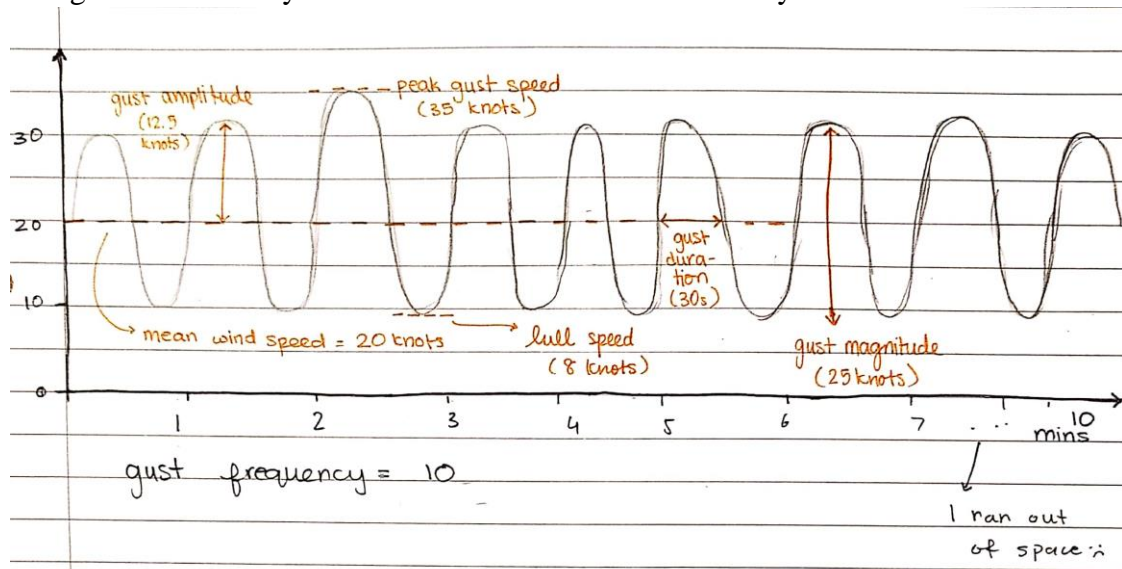 peak gust speed
(35 knots)
gust amplitude
(12.5
knots)
30
20
10
0
gust
dura-
tion
(30s)
mean wind speed = 20 knots
lull speed
(8 knots)
gust magnitude
(25 knots)
1 2 3 4 5 6 7 ... 10
mins
gust frequency = 10
I ran out
of space :